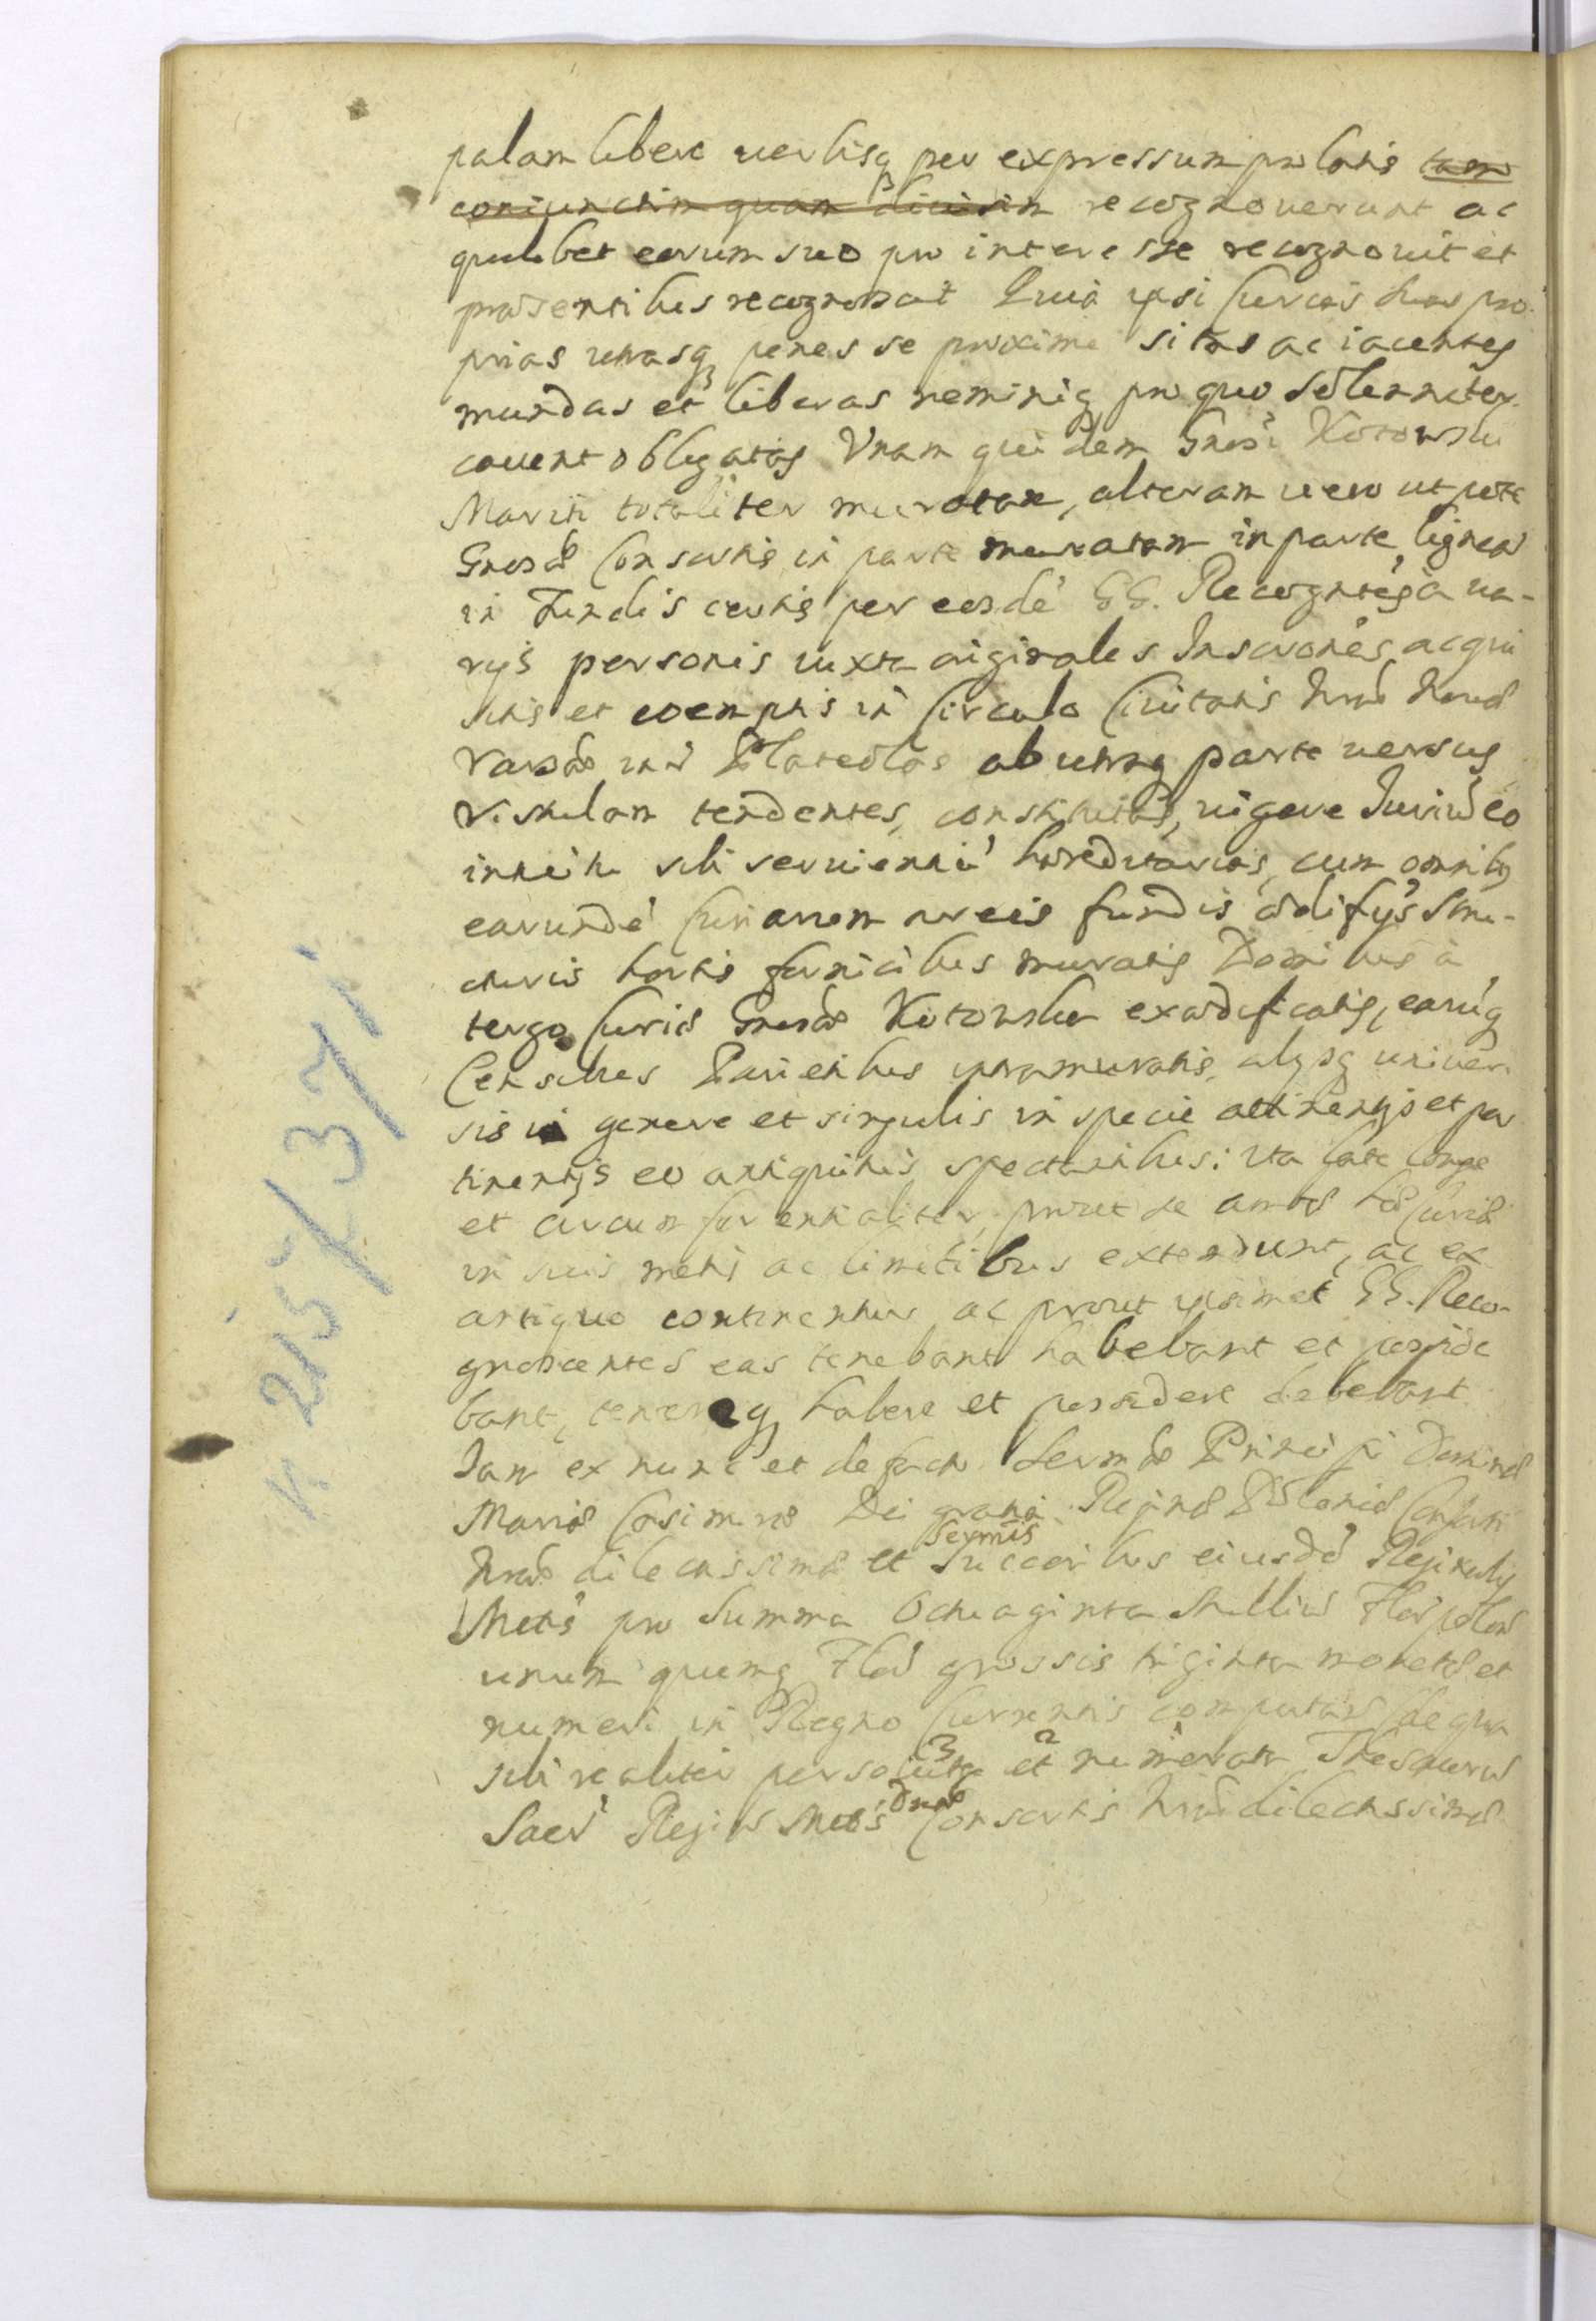 palam libere verbisq per expressum prolatis tam
coniunctim quam divisim recognoverunt ac
quilibet eorum suo pro interesse recognovit et
præsentibus recognoscit Quia ipsi Curias suas pro-
prias utrasq penes se proxime sitas ac iacentes
mundas et liberas neminiq pro quo solenniter
cavent obligatas Unam quidem Gnosi Kotowski
Mariti totaliter muratam, alteram vero utpote
Gnosæ Consortis in parte muratam in parte ligneã
in Fundis certis per eosdē GG. Recogntēs a va-
rijs personis iuxta originales Inscrones acqui
sitis et coemptis in Circulo Civitatis Nræ Novæ
Varsáe inter Plateolas ab utraq parte versus
Vistulam tendentes, constitutas, vigore Iuris eo
intuitu sibi servientis hæreditarias, cum omnibq
earundē Curiarum areis fundis ædificijs Stru-
cturis hortis fornicibus muratis Domibus à
tergo Curiæ Gnosæ Kotowska exædificatis, earúq
Censibus Parietibus intramuratis alijsq univer
sis in genere et singulis in specie attinentijs et per
tinentijs eo antiquitus spectantibus: ita late longe
et circumferentialiter, prout se ambæ hæ Curiæ
in suis metis ac limitibus extendunt, ac ex
antiquo continentur ac prout ipsimet GG. Reco-
gnoscentes eas tenebant habebant et posside
bant, tenereq habere et possidere debebant
Iam ex nunc et de facto Sermæ Principi Dominæ
Mariæ Casimiræ Dei gratia Reginæ Poloniæ Consorti
Nræ dilectissimæ et Sermis Succoribus eiusdē Reginalis
Mttis pro Summa Octuaginta Millium Flor polon
unum quemq Flor grossis triginta monetæ et
numeri in Regno Currentis computan de qua
sibi realiter persoluta 3 et 2 numerata Thesauro
Sacræ Regiæ Mttis Dnæ Consortis Nræ dilectissimæ
K 215/371